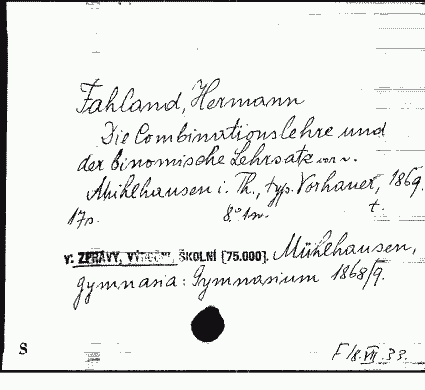 Fahland, Hermann
Die Combinationslehre und
der binomische Lehrsatz von v.
Mühlhausen i. Th., typ. Vorhauer, 1869.
17s. 8° 1w. t.
v: ZPRÁVY, VÝROČNÍ, ŠKOLNÍ [75.000]. Mühlhausen,
gymnasia: Gymnasium 1868/9.
S F18.VII.33.